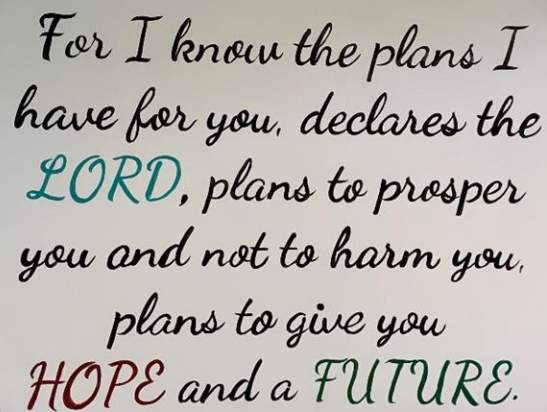 For I know the plans I
have for you, declares the
LORD, plans to prosper
you and not to harm you,
plans to give you
HOPE and a FUTURE.